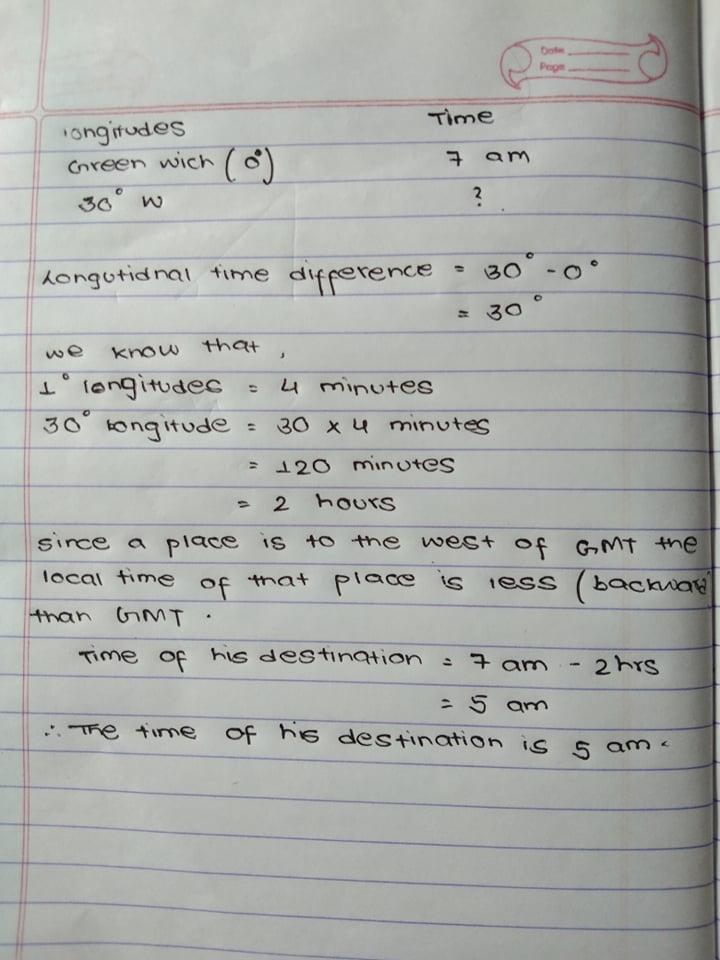 Date
Page
longitudes Time
Green wich (0°) 7 am
30° W ?
Longutidnal time difference = 30° - 0°
= 30°
we know that,
1° longitudes = 4 minutes
30° longitude = 30 x 4 minutes
= 120 minutes
= 2 hours
since a place is to the west of GMT the
local time of that place is less (backward
than GMT.
Time of his destination = 7 am - 2 hrs
= 5 am
∴ The time of his destination is 5 am.